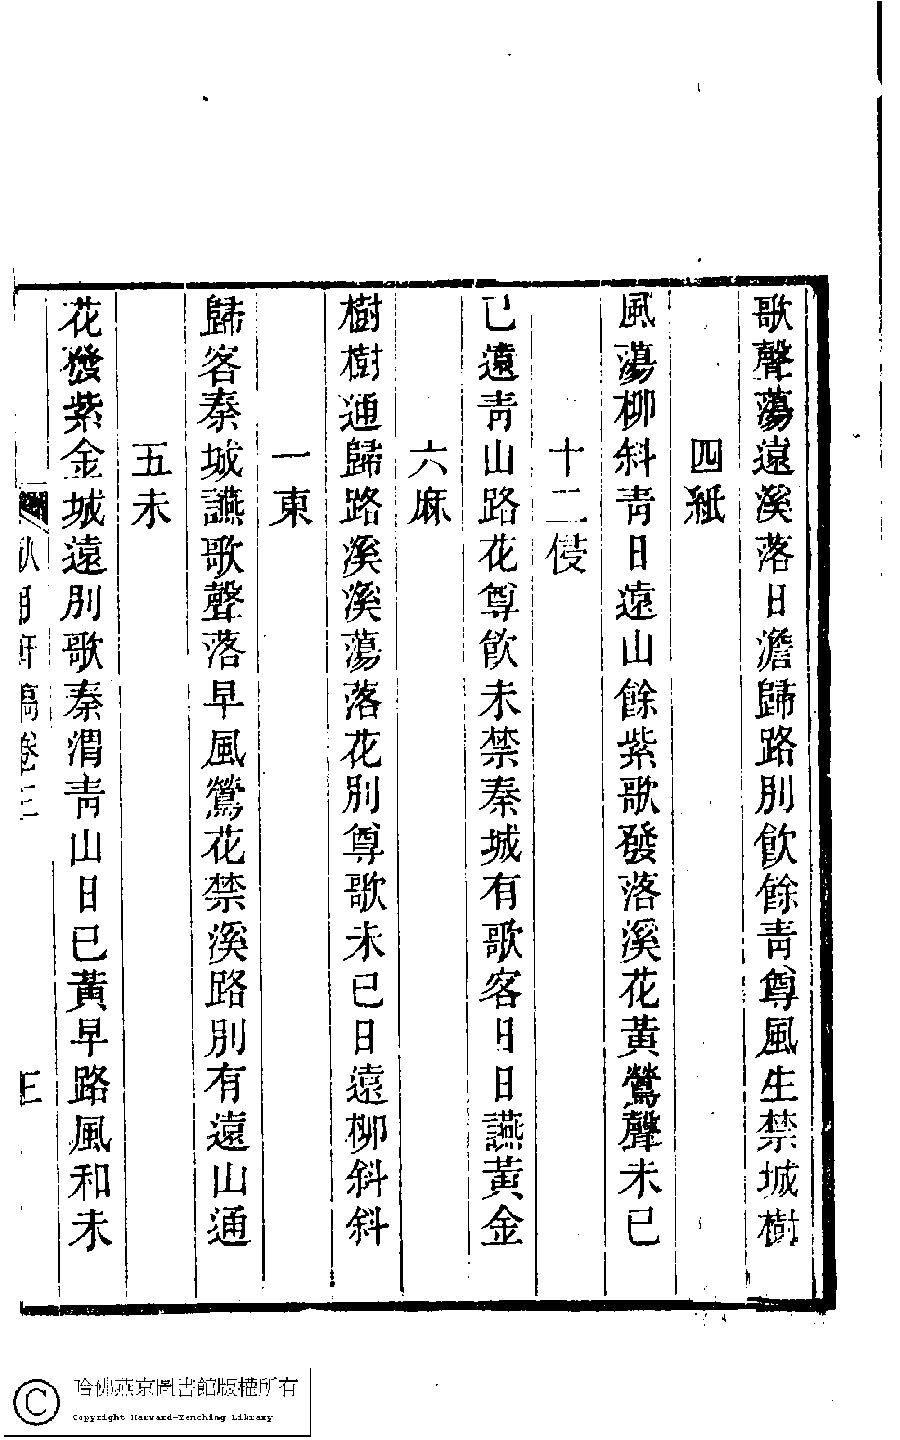 歌聲蕩遠溪落日澹歸路別飲餘青尊風生禁城樹
四紙
風蕩柳斜青日遠山餘紫歌發落溪花黃鶯聲未已
十二侵
已遠青山路花尊飲未禁秦城有歌客日日讌黃金
六麻
樹樹通歸路溪溪蕩落花別尊歌未已日遠柳斜斜
一東
歸客秦城讌歌聲落早風鶯花禁溪路別有遠山通
五未
花發紫金城遠別歌秦渭青山日已黃早路風和未
稿卷三
三
哈佛燕京圖書館版權所有
Copyright Harvard-Yenching Library